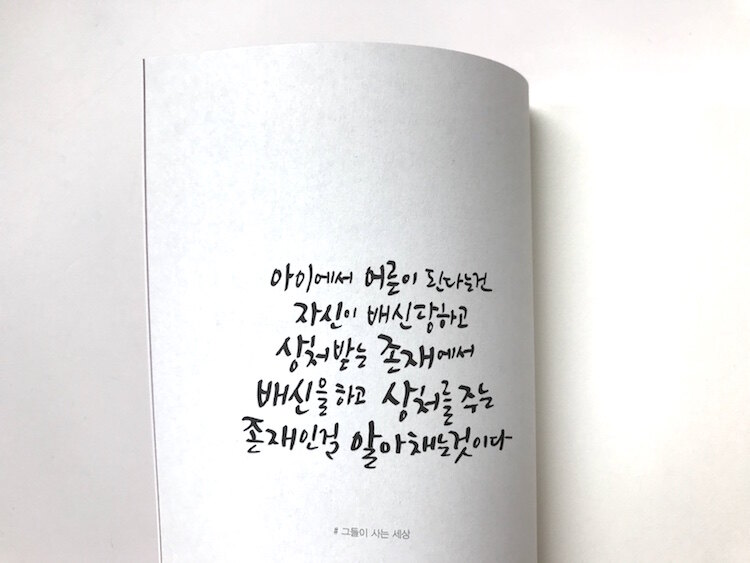 아이에서 어른이 된다는건
자신이 배신당하고
상처받는 존재에서
배신을하고 상처를주는
존재인걸 알아채는것이다
# 그들이 사는 세상